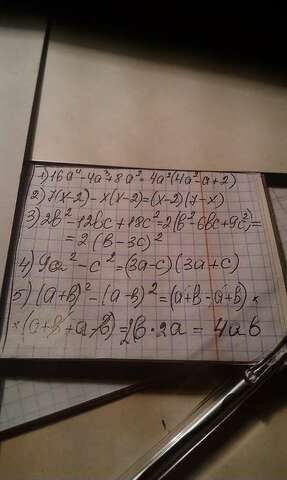 1) 16a⁴-4a³+8a²=4a²(4a²-a+2)
2) 7(x-2)-x(x-2)=(x-2)(7-x)
3) 2в²-12вс+18с²=2(в²-6вс+9с²)=
=2(в-3с)²
4) 9a²-c²=(3a-c)(3a+c)
5) (a+в)²-(a-в)²=(a+в-a+в)×
×(a+в+a-в)=2в·2a=4aв